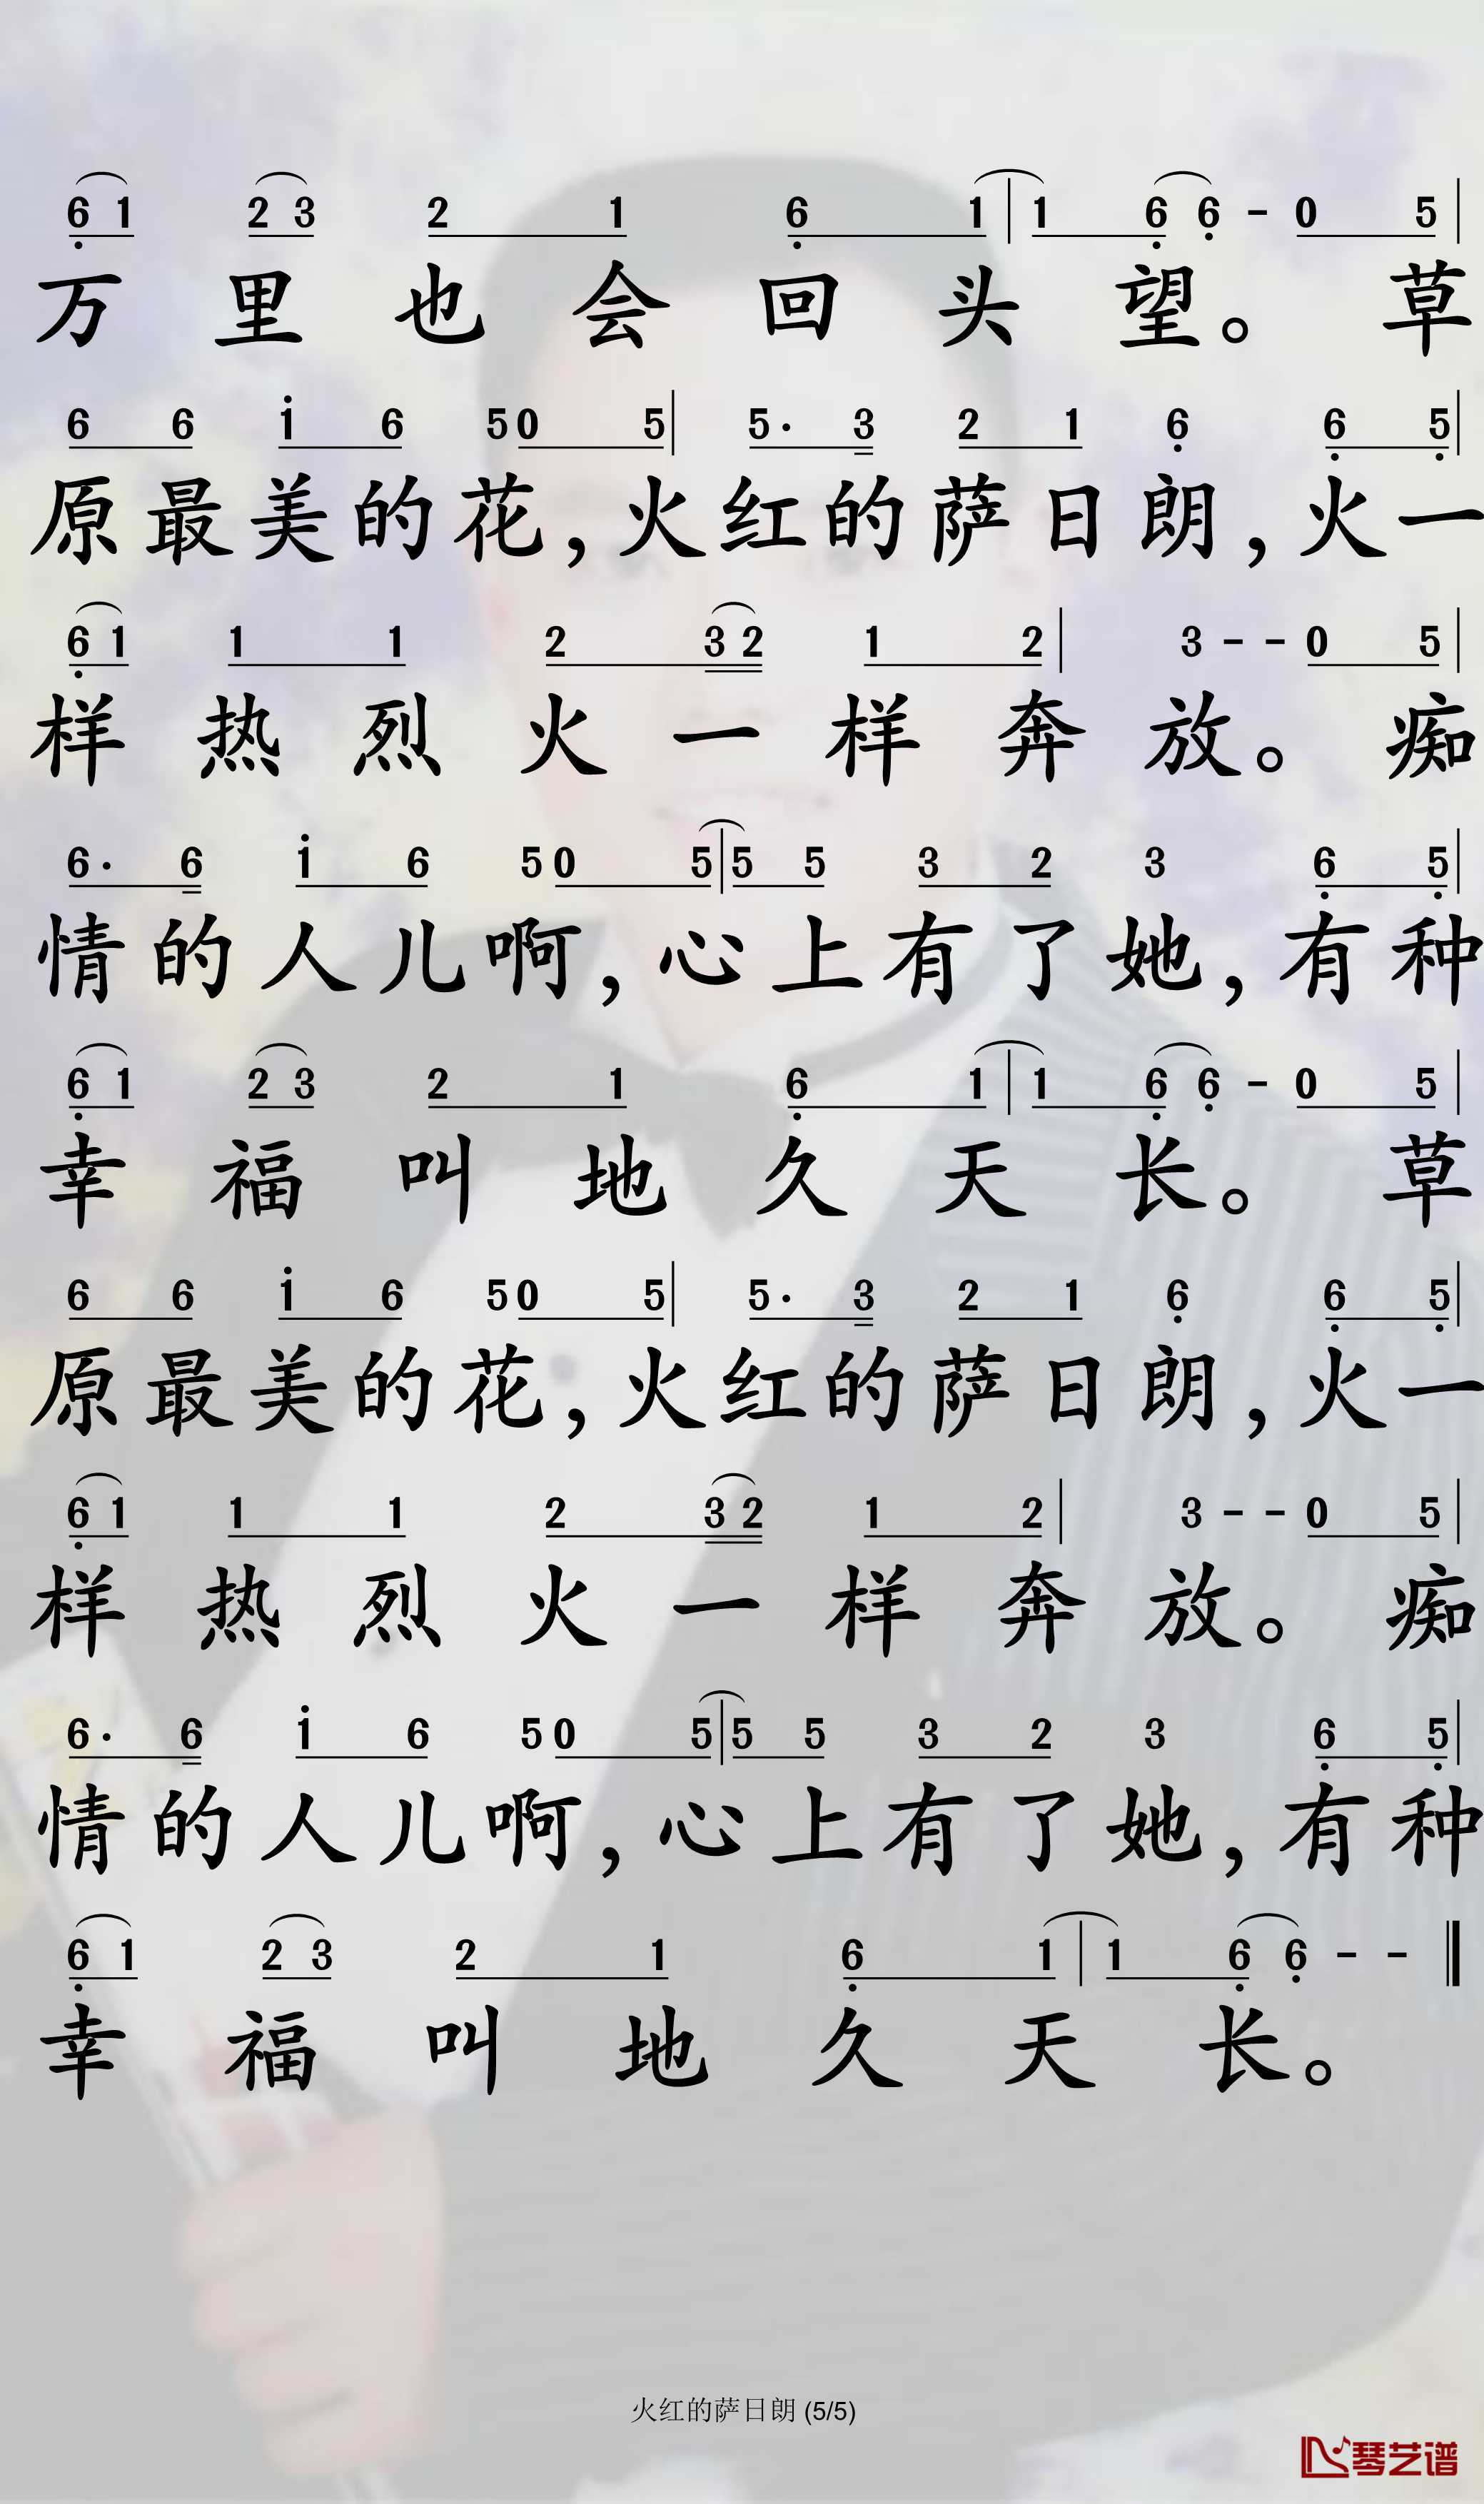 6 1 2 3 2 1 6 1 | 1 6 6 - 0 5 |
万里也会回头望。草
6 6 i 6 5 0 5 | 5· 3 2 1 6 6 5 |
原最美的花,火红的萨日朗,火一
6 1 1 1 2 3 2 1 2 | 3 - - 0 5 |
样热烈火一样奔放。痴
6· 6 i 6 5 0 5 | 5 5 3 2 3 6 5 |
情的人儿啊,心上有了她,有种
6 1 2 3 2 1 6 1 | 1 6 6 - 0 5 |
幸福叫地久天长。草
6 6 i 6 5 0 5 | 5· 3 2 1 6 6 5 |
原最美的花,火红的萨日朗,火一
6 1 1 1 2 3 2 1 2 | 3 - - 0 5 |
样热烈火一样奔放。痴
6· 6 i 6 5 0 5 | 5 5 3 2 3 6 5 |
情的人儿啊,心上有了她,有种
6 1 2 3 2 1 6 1 | 1 6 6 - - ‖
幸福叫地久天长。
火红的萨日朗 (5/5)
琴艺谱